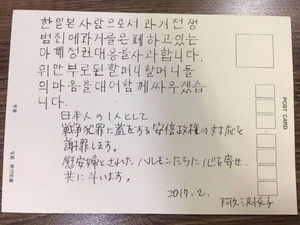 한일본사람으로서과거전쟁
범죄에과거를은폐하고있는
아베정권대응을사과합니다.
위안부로된할머니할머니들
의마음을대어함께싸우겠습
니다.
日本人の1人として、
戦争犯罪に蓋をする安倍政権の対応を
謝罪します。
慰安婦とされたハルモニたちに心を寄せ
共に斗います。
2017.2.
POST CARD